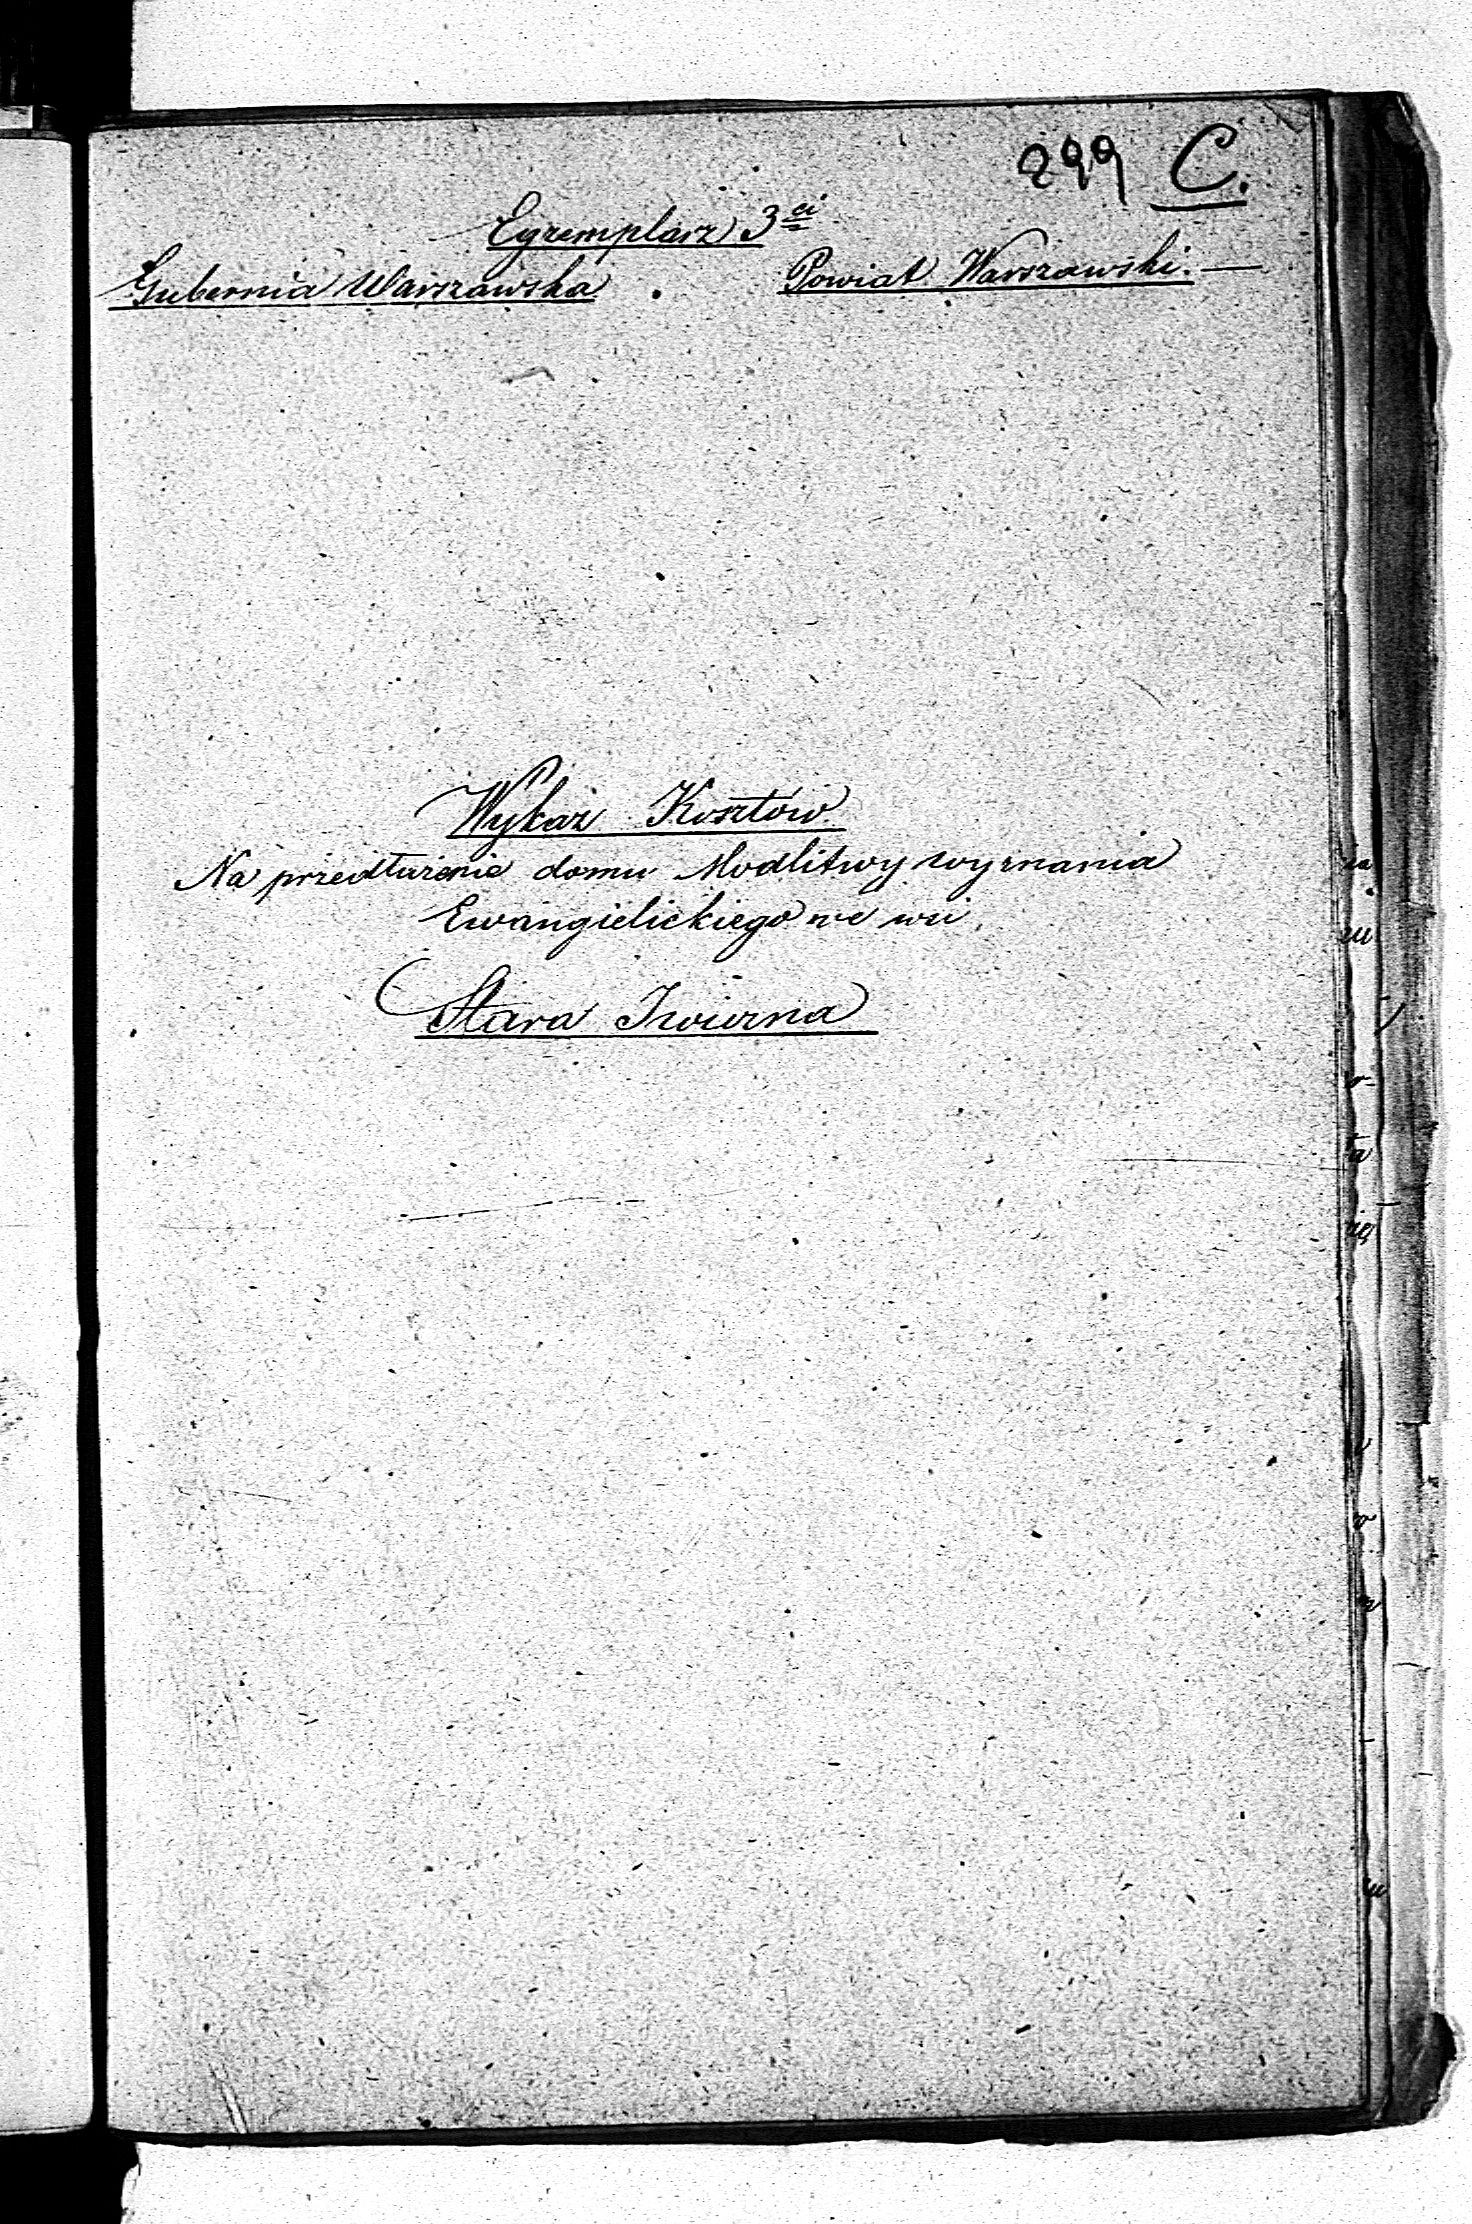 299 C.
Egzemplarz 3ci
Gubernia Warszawska . Powiat Warszawski. —
Wykaz Kosztów
Na przedłużenie domu Modlitwy wyznania
Ewangielickiego we wsi
Stara Iwiczna